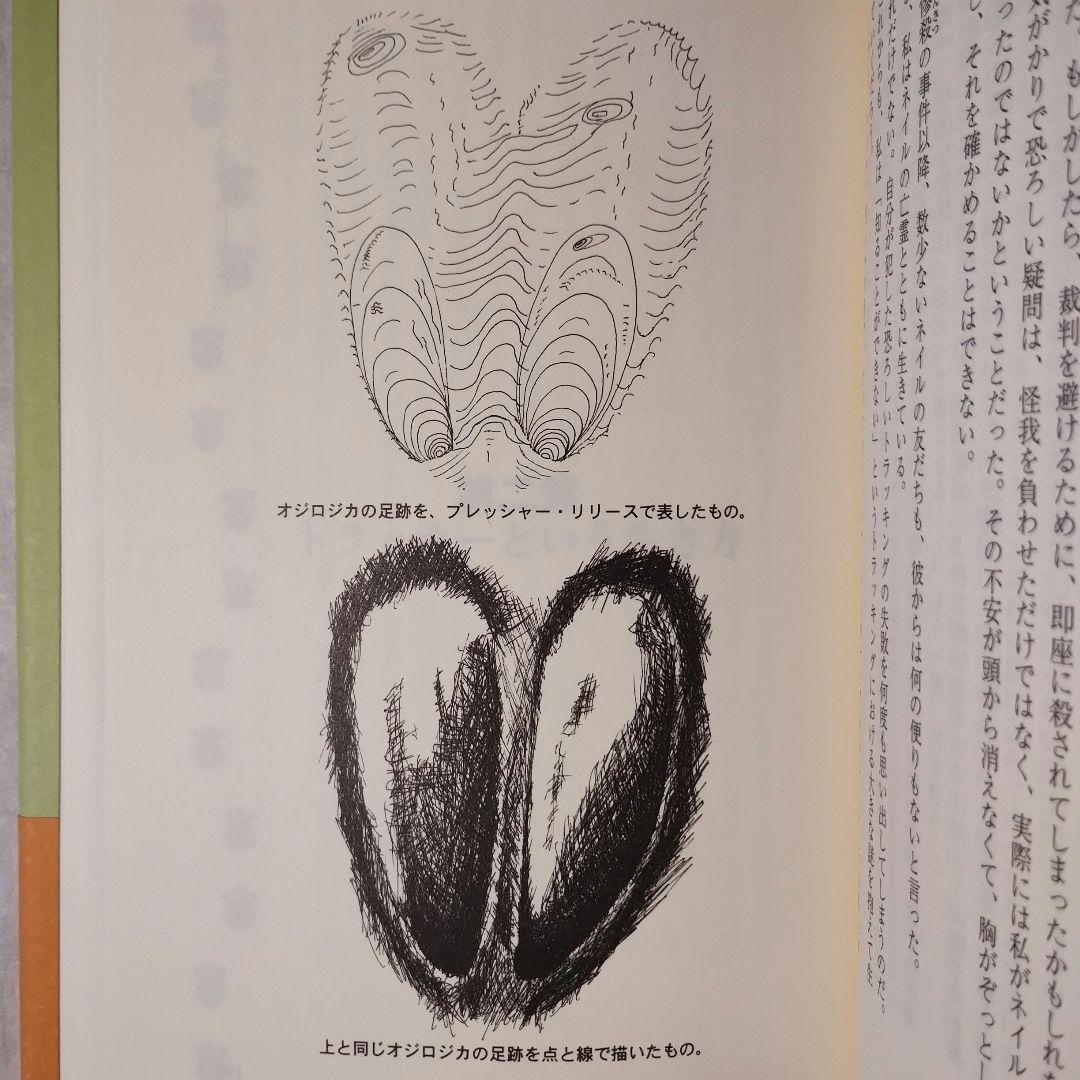 た。もしかしたら、裁判を避けるために、即座に殺されてしまったかもしれな
気がかりで恐ろしい疑問は、怪我を負わせただけではなく、実際には私がネイル
ったのではないかということだった。その不安が頭から消えなくて、胸がぞっとし
し、それを確かめることはできない。
惨殺の事件以降、数少ないネイルの友だちも、彼からは何の便りもないと言った。
、私はネイルの亡霊とともに生きている。
れだけでない。自分が犯した恐ろしいトラッキングの失敗を何度も思い出してしまうのだ。
これからも、私は「知ることができない」というトラッキングにおける大きな謎を
オジロジカの足跡を、プレッシャー・リリースで表したもの。
上と同じオジロジカの足跡を点と線で描いたもの。